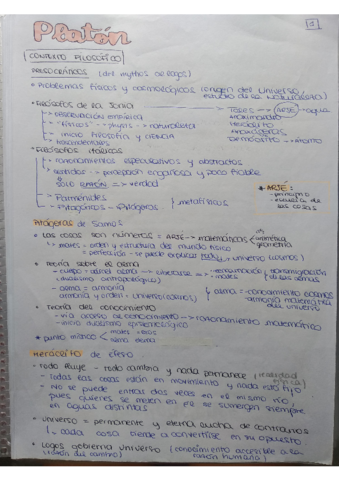 Platón
1
CONTEXTO FILOSÓFICO
PRESOCRÁTICOS (del mythos al logos)
• Problemas físicos y cosmológicos (origen del universo
estudio de la NATURALEZA)
• Filósofos de la Jonia
- observación empírica
- "físicos" - "physis" -> naturaleza
- inicio filosofía y CIENCIA
TALES -> ARJÉ -> agua
HERÁCLITO
DEMÓCRITO -> átomo
• Filósofos itálicos
- razonamientos especulativos y abstractos
- sentidos -> percepción engañosa y poco fiable
SOLO RAZÓN => verdad
- Parménides
- Pitagóricos - Pitágoras
metafísicos
* ARJÉ:
- principio
- esencia de
las cosas
Pitágoras de Samos
• Las cosas son números = ARJÉ -> matemáticas
aritmética
geometría
↳ mates - orden y estructura del mundo físico
= perfección - se puede explicar todo y el universo (cosmos)
• Teoría sobre el alma
- cuerpo - cárcel alma -> liberarse
(dualismo antropológico)
- reencarnación / transmigración
- mates
de las almas
- alma = armonía
armonía y orden = universo
alma = conocimiento cosmos
- armonía matemática
del universo
• Teoría del conocimiento
- vía acceso al conocimiento -> razonamiento matemático
- inicia dualismo epistemológico
* punto mítico < mates - dios
alma eterna
Heráclito de Éfeso
• Todo fluye - todo cambia y nada permanece (realidad
- Todas las cosas están en movimiento y nada está fijo
- No se puede entrar dos veces en el mismo río,
pues quienes se meten en él se sumergen siempre
en aguas distintas
• universo = permanente y eterna lucha de contrarios
↳ cada cosa tiende a convertirse en su opuesto
• Logos gobierna universo (conocimiento accesible a la
(razón del cambio) razón humana)